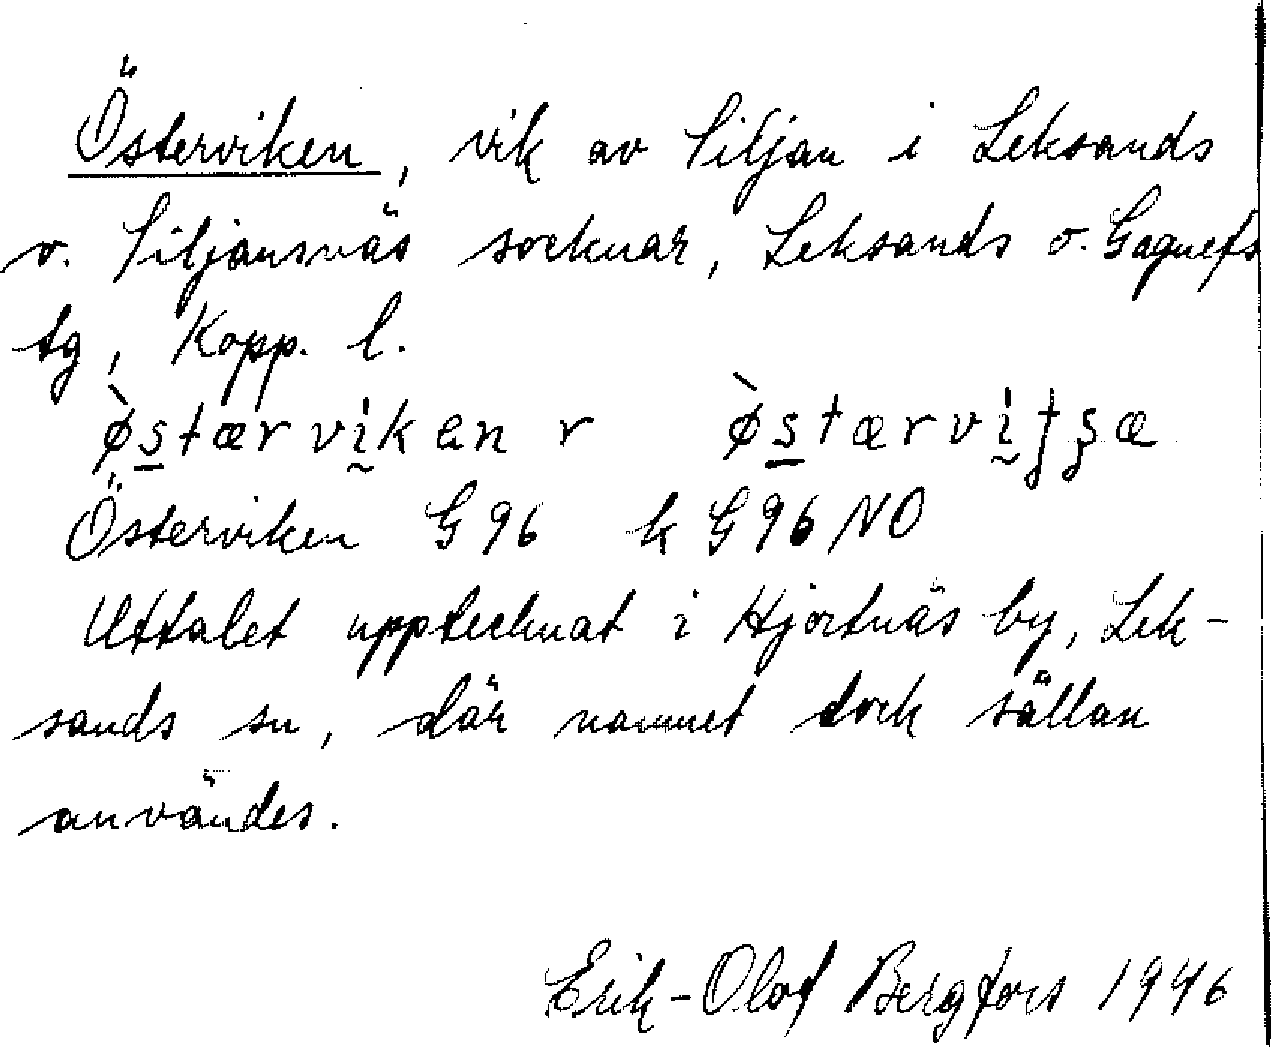 Österviken, vik av Siljan i Leksands
o. Siljansnäs socknar, Leksands o. Gagnefs
tg, Kopp. l.
ø̀s̲tærvḭken r ø̀s̲tærvḭʈʂæ
Österviken G 96 k G 96 NO
Uttalet upptecknat i Hjortnäs by, Lek-
sands sn, där namnet dock sällan
användes.
Erik-Olof Bergfors 1946